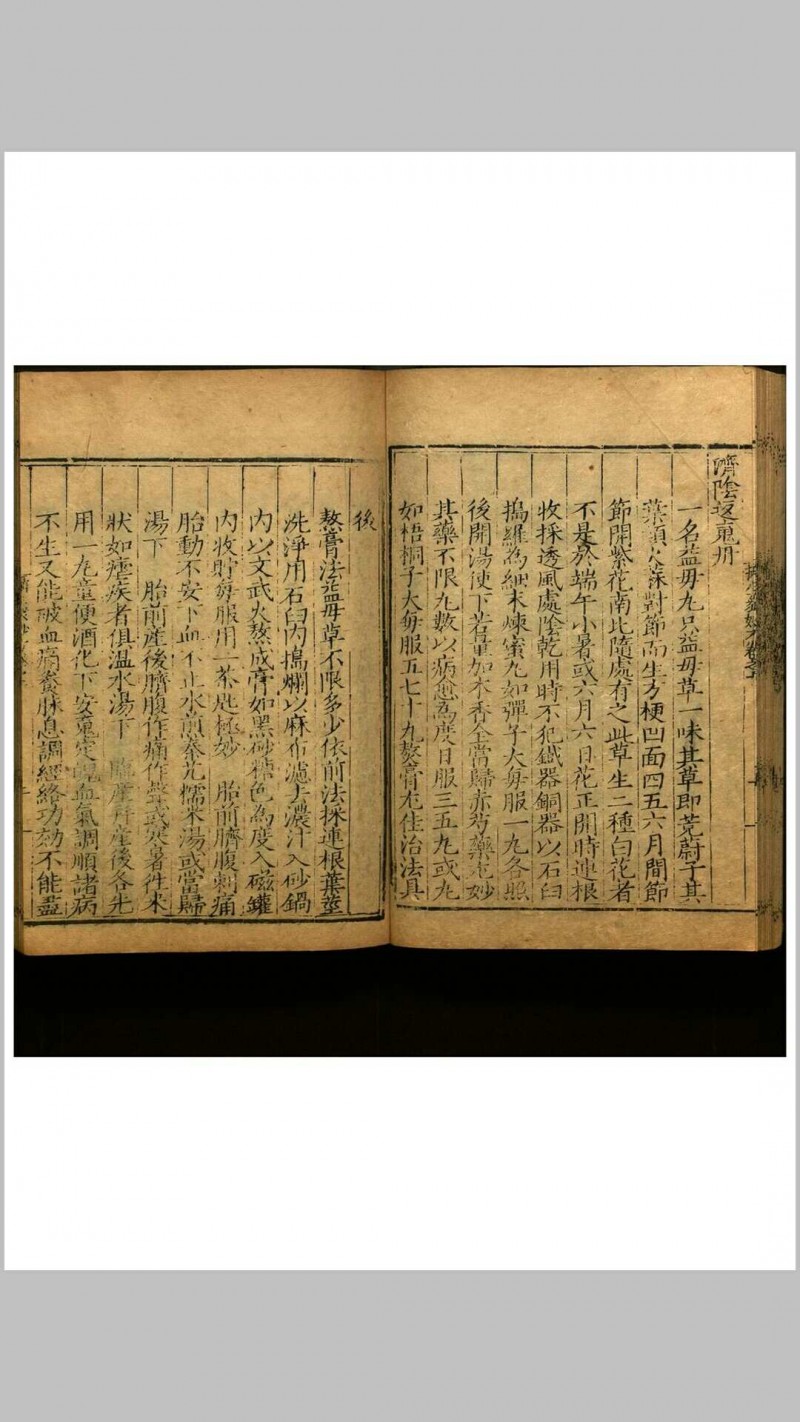 濟陰返䰟丹
一名益母丸只益母草一味其草即茺蔚子其
葉類火蔴對節而生方梗凹面四五六月間節
節開紫花南北隨處有之此草生二種白花者
不是於端午小暑或六月六日花正開時連根
收採透風處陰乾用時不犯鐵器銅器以石臼
搗羅為細末煉蜜丸如彈子大每服一丸各照
後開湯使下若量加木香全當歸赤芍藥尤妙
其藥不限丸數以病愈為度日服三五丸或丸
如梧桐子大每服五七十丸熬膏尤佳治法具
後
熬膏法益母草不限多少依前法採連根葉莖
洗淨用石臼內搗爛以麻布濾去濃汁入砂鍋
內以文武火熬成膏如黑砂糖色為度入磁罐
內收貯每服用一茶匙極妙　胎前臍腹刺痛
胎動不安下血不止水煎秦艽糯米湯或當歸
湯下　胎前產後臍腹作痛作聲或寒暑徃來
狀如瘧疾者俱溫水湯下　臨產并產後各先
用一丸童便酒化下安䰟定魄血氣調順諸病
不生又能破血痛養脉息調經絡功効不能盡